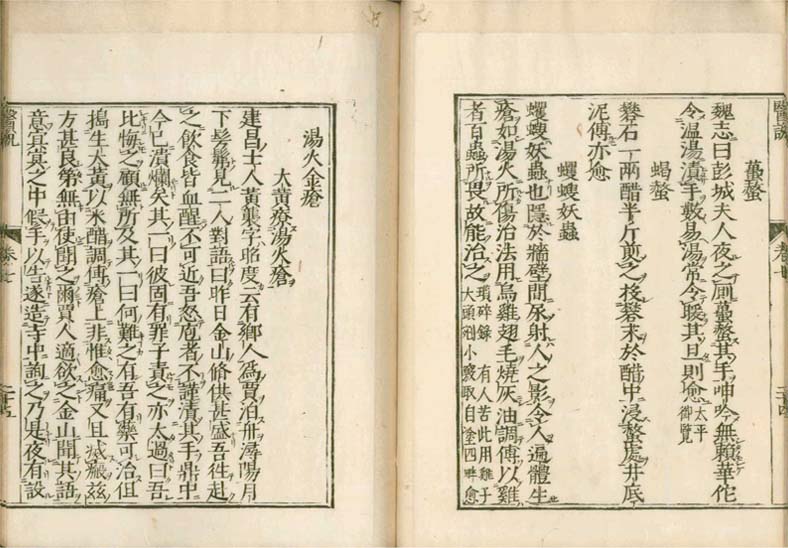 蠆螫
魏志曰彭城夫人夜之厠蠆螫其手呻吟無賴華佗
令温湯漬手數易湯常令暖其旦則愈太平御覽
蝎螫
礬石一兩醋半斤煎之投礬末於醋中浸螫處井底
泥傅亦愈
蠼螋妖蟲
蠼螋妖蟲也隱於牆壁間尿射人之影令人遍體生
瘡如湯火所傷治法用烏雞翅毛燒灰油調傅以雞
者百蟲所畏故能治之瑣碎錄 有人苦此用雞子大頭剜小竅取自塗四畔愈
醫説
卷七
二十四
湯火金瘡
大黄療湯火瘡
建昌士人黄襲字昭度云有鄉人爲賈泊舟潯陽月
下髣髴見二人對語曰昨日金山修供甚盛吾往赴
之飲食皆血腥不可近吾怒庖者不謹漬其手鼎中
今已潰爛矣其一曰彼固有罪子責之亦太過曰吾
比悔之顧無所及其一曰何難之有吾有藥可治但
搗生大黄以米醋調傅瘡上非惟愈痛又且滅瘢兹
方甚良第無由使聞之爾賈人適欲之金山聞其語
意冥冥之中假手以告遂造寺中詢之乃是夜有設
醫説
卷七
二十四